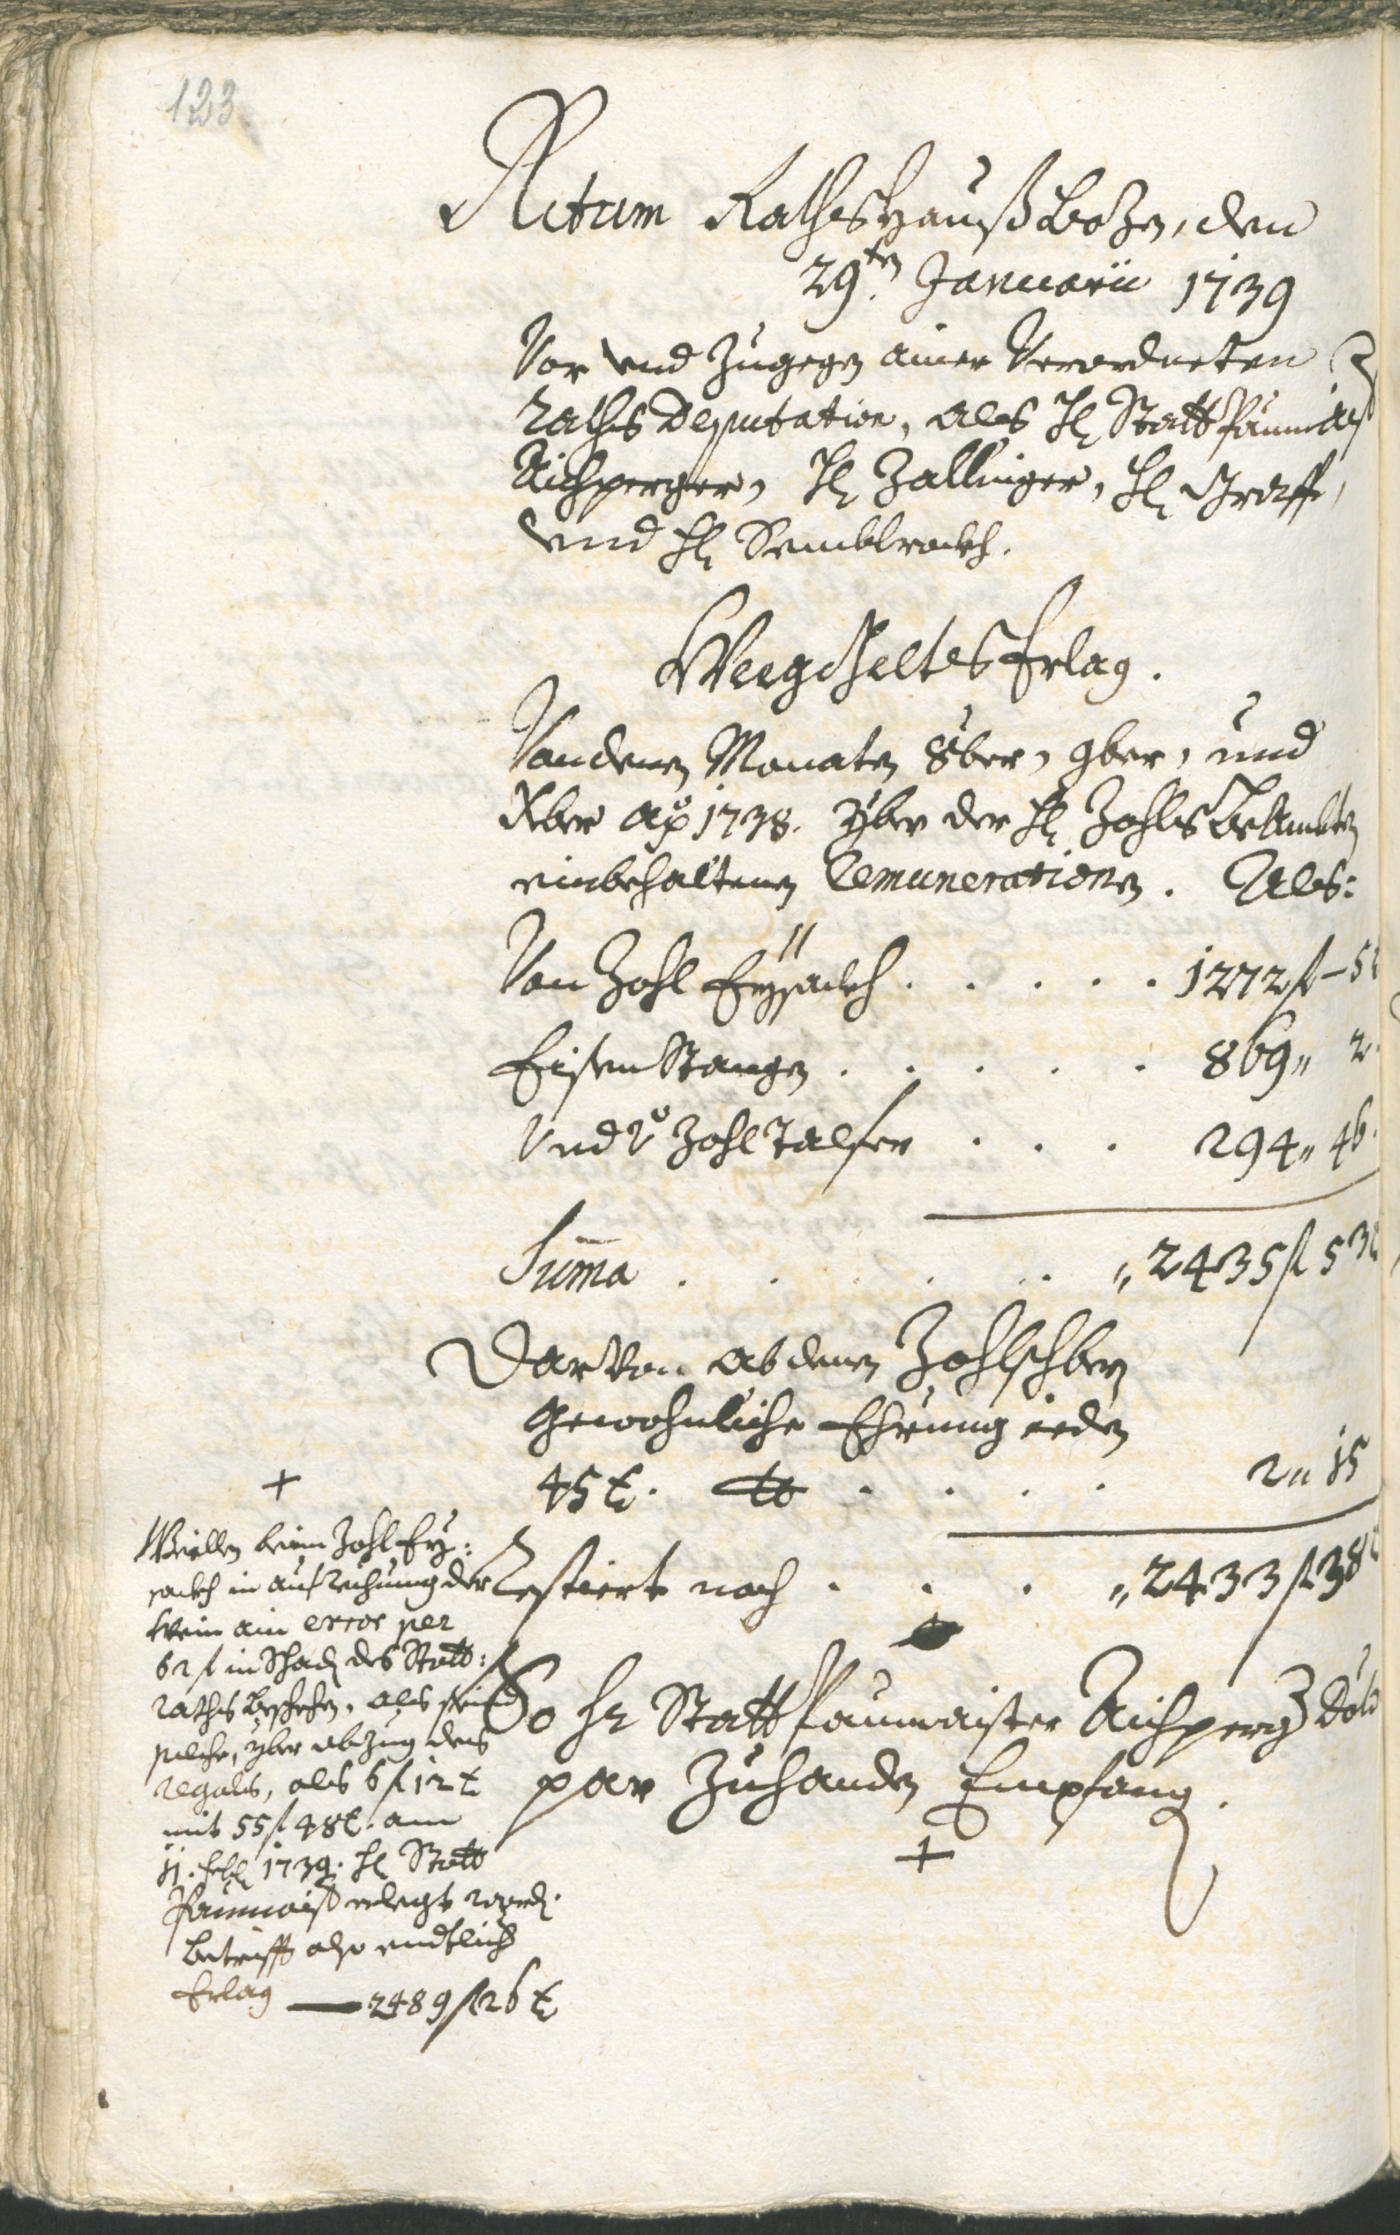 123
Actum Rathshauß Bozen, den
29.ten Januarii 1739
Vor und zugegen ainer Verordneten
Raths Deputation, als H: Statt Paumaist
Aichperger, H: Zallinger, H: Graff,
und H:
WeegGeltes Erlag.
Von denen Monaten 8ber, 9ber, und
Xber ao 1738. yber der H: Zohls Beambten
einbehaltenen Remunerationen. Als:
Von Zohl Eysackh . . . . . 1272 f – 5
Eisen Stangen . . . . . 869 „ 2
Und V. Zohl Talfer . . . 294 „ 46
Suma . . . . . „ 2435 f 53
Darvon ab denen Zohlschbern
gewohnliche Ehrung ieden
45 k. tt . . . . 2 „ 15
Restiert noch . . . „ 2433 f 38
So Hr Statt Paumaister Aichperger
par Zuhanden Empfang.
+
+
Weillen beim Zohl Ey:
sackh in auf Rechnung der
Wein ain error per
62 f in Schaden des Statt:
raths beschehen, als seind
solche, yber abzug des
regals, als 6 f 12 k
mit 55 f 48 k. am
11. Feb: 1739. H: Statt
Paumaister erlegt worden.
Betrifft also endtlich
Erlag — 2489 f 26 k